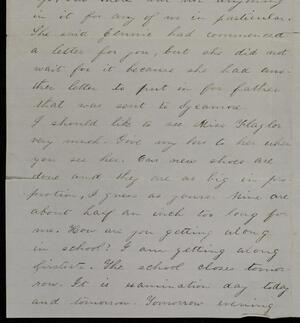 in it for any of us in particular.
She said Jennie had commenced
a letter for you, but she did not
wait for it because she had ano-
ther letter to put in for father
that was sent to Sycamore
I should like to see Miss Flagler
very much. Give my love to her when
you see her. Our new shoes are
done and they are as big in pro-
portion, I guess as yours. Mine are
about half an inch too long for
me. How are you getting along
in school? I am getting along
firstist. The school closes tomor-
row. It is examination day today
and tomorrow. Tomorrow evening